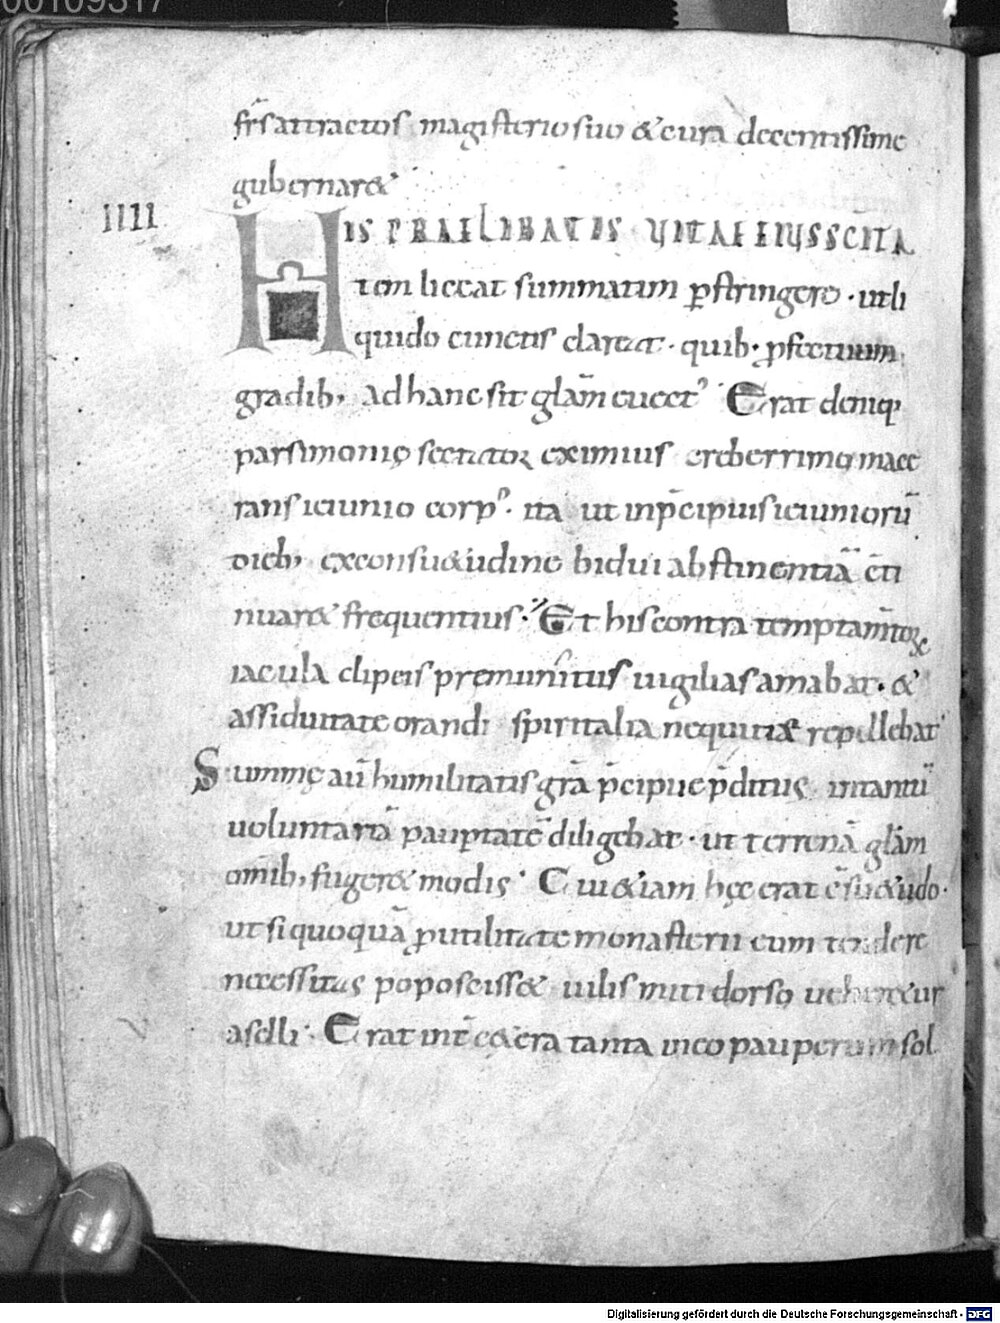 00109317
fr̄s attractos magisterio suo & cura decentissime
gubernar&
IIII
HIS PRAELIBATIS UITAE EIUS SCITA
tem liceat summatim ꝑstringere · ut li
quido cunctis clareat · quib; ꝓfectuum
gradib; ad hanc sit glām euect᾿ Erat deniq;
parsimonię sectator eximius creberrimo mace
rans ieiunio corp᾿ · ita ut in p̄cipuis ieiuniorū
dieb; ex consu&udine bidui abstinentiā c̄ti
nuar& frequentius · Et his contra temptam̄toꝝ
iacula clipeis premunitus uigilias amabat · &
assiduitate orandi spiritalia nequitiæ repellebat
Summę aū humilitatis gr̄a p̄cipue p̄ditus intantū
uoluntariā pauptatē diligebat · ut terrenā glām
omīb; fuger& modis · Cui &iam hęc erat c̄su&udo ·
ut si quoquā ꝓ utilitate monasterii eum tendere
necessitas poposciss& uilis miti dorso ueher&ur
aselli · Erat int̄ c&era tanta in eo pauperum sol
Digitalisierung gefördert durch die Deutsche Forschungsgemeinschaft - DFG